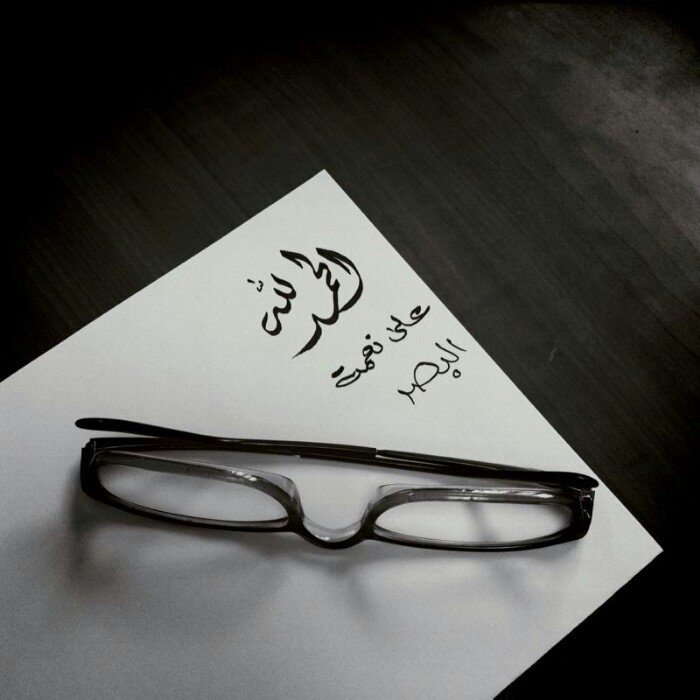 الحمد لله
على نعمة
البصر